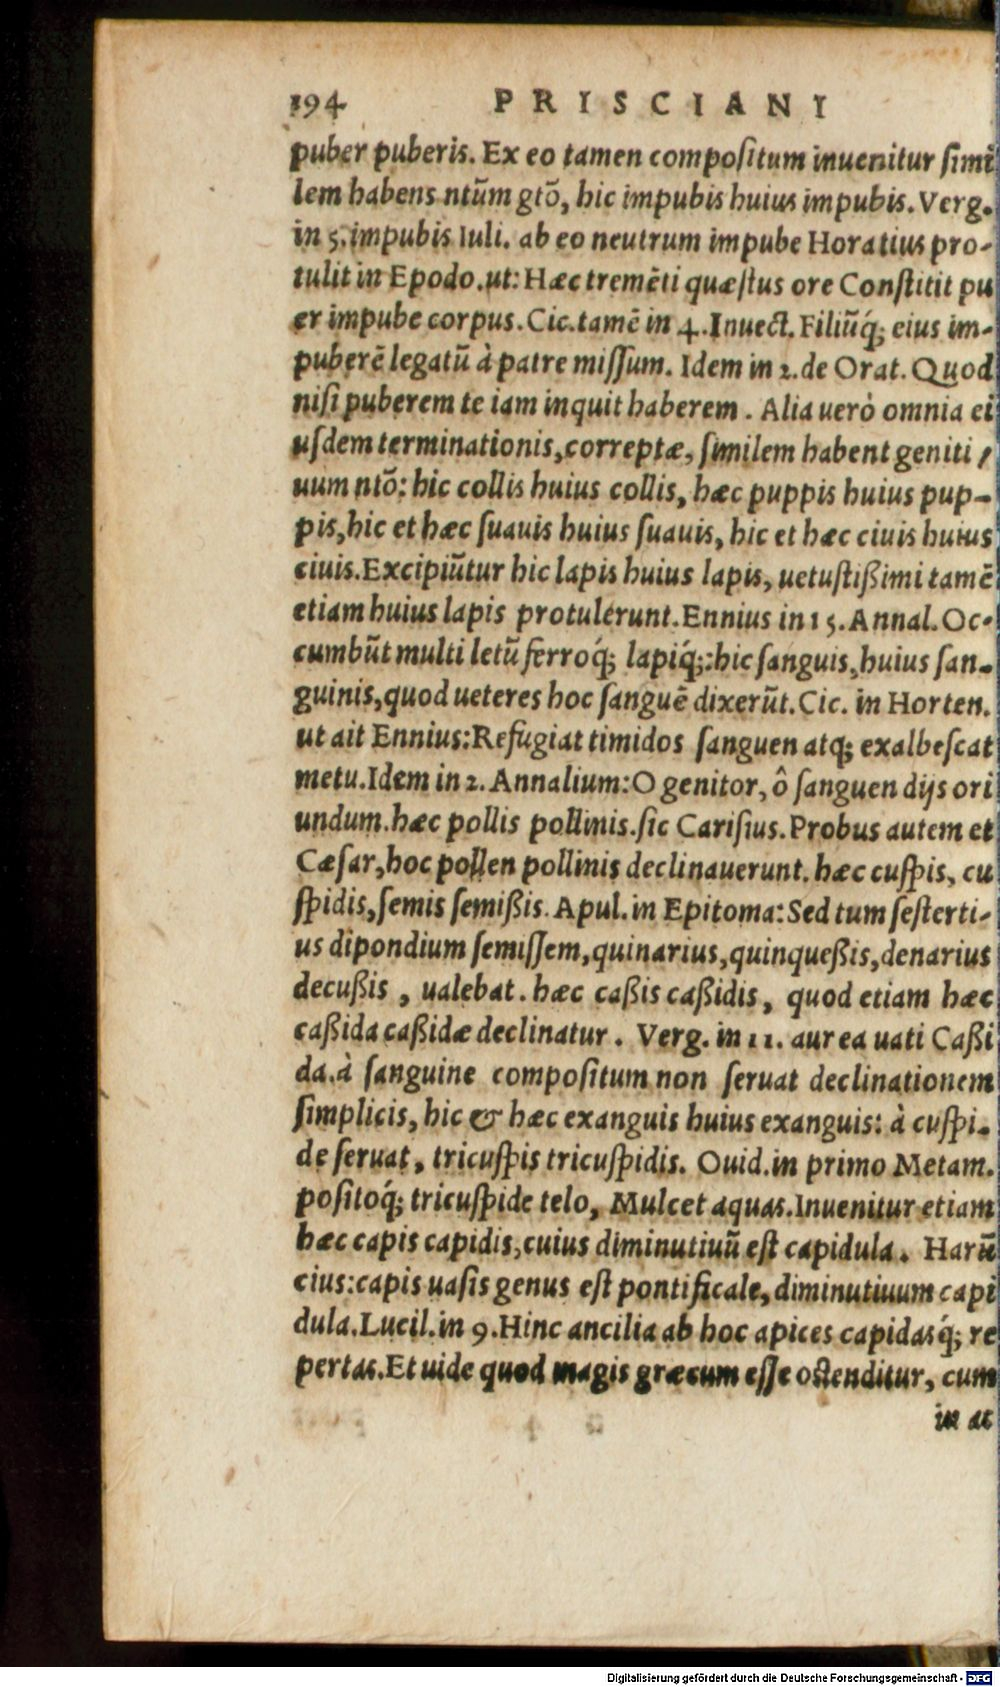 194 PRISCIANI
puber puberis. Ex eo tamen compoſitum inuenitur ſimi
lem habens ntũm gtõ, hic impubis huius impubis. Verg.
in 5. impubis Iuli. ab eo neutrum impube Horatius pro-
tulit in Epodo. ut: Hæc tremẽti quæſtus ore Conſtitit pu
er impube corpus. Cic. tamẽ in 4. Inuect. Filiũq́; eius im-
puberẽ legatũ à patre miſſum. Idem in 2. de Orat. Quod
niſi puberem te iam inquit haberem. Alia uerò omnia ei
uſdem terminationis, correptæ, ſimilem habent geniti/
uum ntõ: hic collis huius collis, hæc puppis huius pup-
pis, hic et hæc ſuauis huius ſuauis, hic et hæc ciuis huius
ciuis. Excipiũtur hic lapis huius lapis, uetuſtißimi tamẽ
etiam huius lapis protulerunt. Ennius in 15. Annal. Oc-
cumbũt multi letũ ferroq́; lapiq́;: hic ſanguis, huius ſan-
guinis, quod ueteres hoc ſanguẽ dixerũt. Cic. in Horten.
ut ait Ennius: Refugiat timidos ſanguen atq; exalbeſcat
metu. Idem in 2. Annalium: O genitor, ô ſanguen dijs ori
undum. hæc pollis pollinis. ſic Cariſius. Probus autem et
Cæſar, hoc pollen pollinis declinauerunt. hæc cuſpis, cu
ſpidis, ſemis ſemißis. Apul. in Epitoma: Sed tum ſeſterti-
us dipondium ſemiſſem, quinarius, quinqueßis, denarius
decußis, ualebat. hæc caßis caßidis, quod etiam hæc
caßida caßidæ declinatur. Verg. in 11. aurea uati Caßi
da. à ſanguine compoſitum non ſeruat declinationem
ſimplicis, hic & hæc exanguis huius exanguis: à cuſpi-
de ſeruat, tricuſpis tricuſpidis. Ouid. in primo Metam.
poſitoq́; tricuſpide telo, Mulcet aquas. Inuenitur etiam
hæc capis capidis, cuius diminutiuũ eſt capidula. Harũ
cius: capis uaſis genus eſt pontificale, diminutiuum capi
dula. Lucil. in 9. Hinc ancilia ab hoc apices capidasq́; re
pertas. Et uide quod magis græcum eſſe oſtenditur, cum
in ac
Digitalisierung gefördert durch die Deutsche Forschungsgemeinschaft - DFG